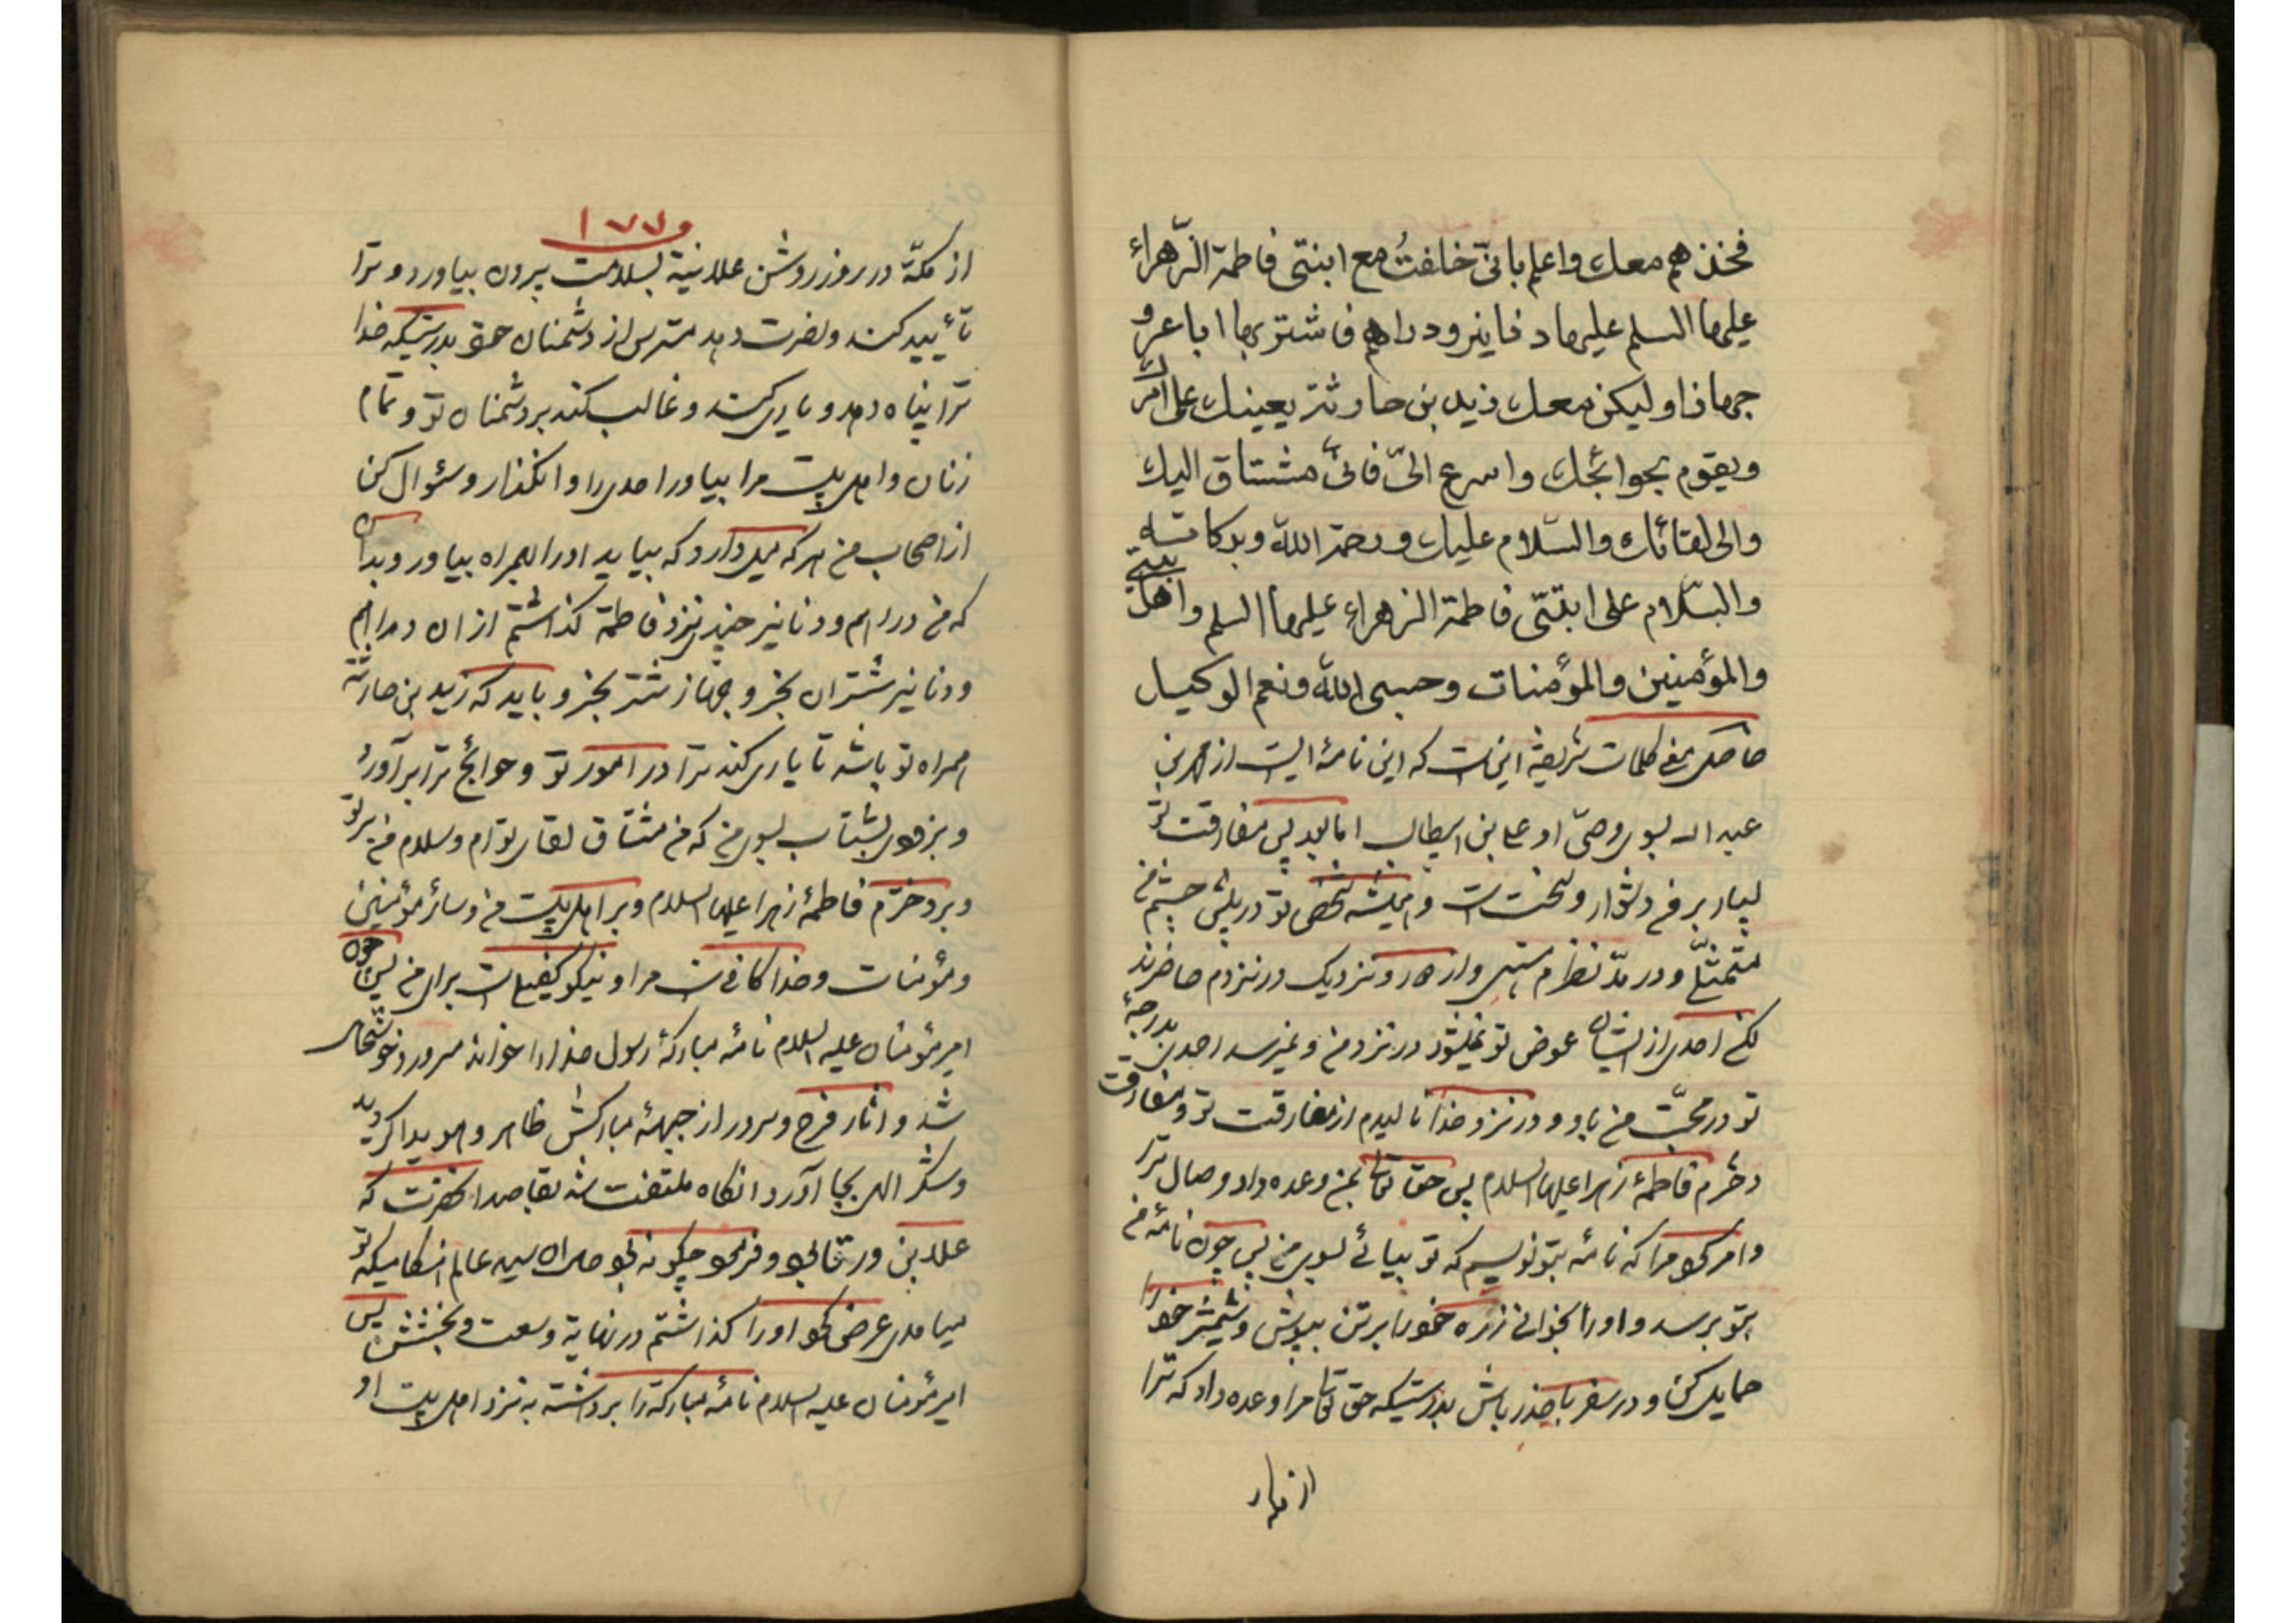 فخذهم معك واعلم بانّی خلفتُ مع ابنتی فاطمة الزّهراء
علیهما السلم علیهما دنانیر ودراهم فاشتر بها اباعر و
جهازا ولیکن معک زید بن حارثة یعینک علی امرک
ویقوم بحوائجک واسرع الیّ فانّی مشتاق الیک
والی لقائک والسّلام علیک ورحمة الله وبرکاته
والسّلام علی ابنتی فاطمة الزهراء علیهما السلم واهل بیتی
والمؤمنین والمؤمنات وحسبی الله ونعم الوکیل
حاصل معنی کلمات شریفه اینست که این نامهٔ ایست از محمد بن
عبد الله بسوی وصیّ او علی بن ابیطالب اما بعد پس مفارقت تو
بسیار بر من دشوار و سخت است و همیشه شخص تو در پیش چشم من
متمثّل و در مدّ نظرم هستی و از دور و نزدیک در نزدم حاضرند
لکن احدی از ایشان عوض تو نمیشود در نزد من و نمیرسد احدی بدرجهٔ
تو در محبّت من باو و در نزد خدا نالیدم از مفارقت تو و مفارقت
دخترم فاطمهٔ زهرا علیها السلام پس حق تعالی بمن وعده داد وصال ترا
و امر نمود مرا که نامه بتو نویسم که تو بیائی بسوی من پس چون نامهٔ من
بتو برسد و او را بخوانی زره خود را بر تن بپوش و شمشیر خود را
حمایل کن و در سفر با حذر باش بدرستیکه حق تعالی مرا وعده داد که ترا
از مکه
۱۷۷
از مکّه در روز روشن علانیة بسلامت بیرون بیاورد و ترا
تأیید کند و نصرت دهد مترس از دشمنان حق بدرستیکه خدا
ترا پناه دهد و یاری کند و غالب کند بر دشمنان تو و تمام
زنان و اهل بیت مرا بیاور احدی را وا نگذار و سئوال کن
از اصحاب من هر که میل دارد که بیاید او را بهمراه بیاور و بدان
که من دراهم و دنانیر چندی نزد فاطمة گذاشتم از ان دراهم
و دنانیر شتران بخر و جهاز شتر بخر و باید که زید بن حارثة
همراه تو باشد تا یاری کند ترا در امور تو و حوائج ترا برآورد
و بزودی بشتاب بسوی من که من مشتاق لقای توام و سلام من بر تو
و بر دخترم فاطمهٔ زهرا علیها السلام و بر اهل بیت من و سائر مؤمنین
و مؤمنات و خدا کافی است مرا و نیکو کفیل است برای من پس چون
امیر مؤمنان علیه السلام نامهٔ مبارکهٔ رسول خدا را خواند مسرور و خوشحال
شد و اثار فرح و سرور از جبههٔ مبارکش ظاهر و هویدا گردید
و شکر الهی بجا آورد انگاه ملتفت شد بقاصد انحضرت که
میامدی عرض نمود او را گذاشتم در نهایة وسعت و بخشش پس
امیر مؤمنان علیه السلام نامهٔ مبارکه را برداشته به نزد اهل بیت او